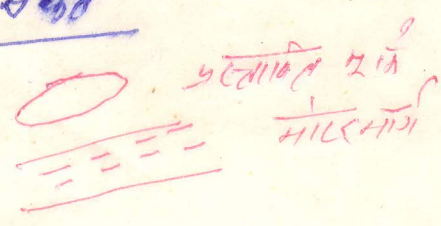 प्रस्तावित मार्ग
मोटरमार्ग